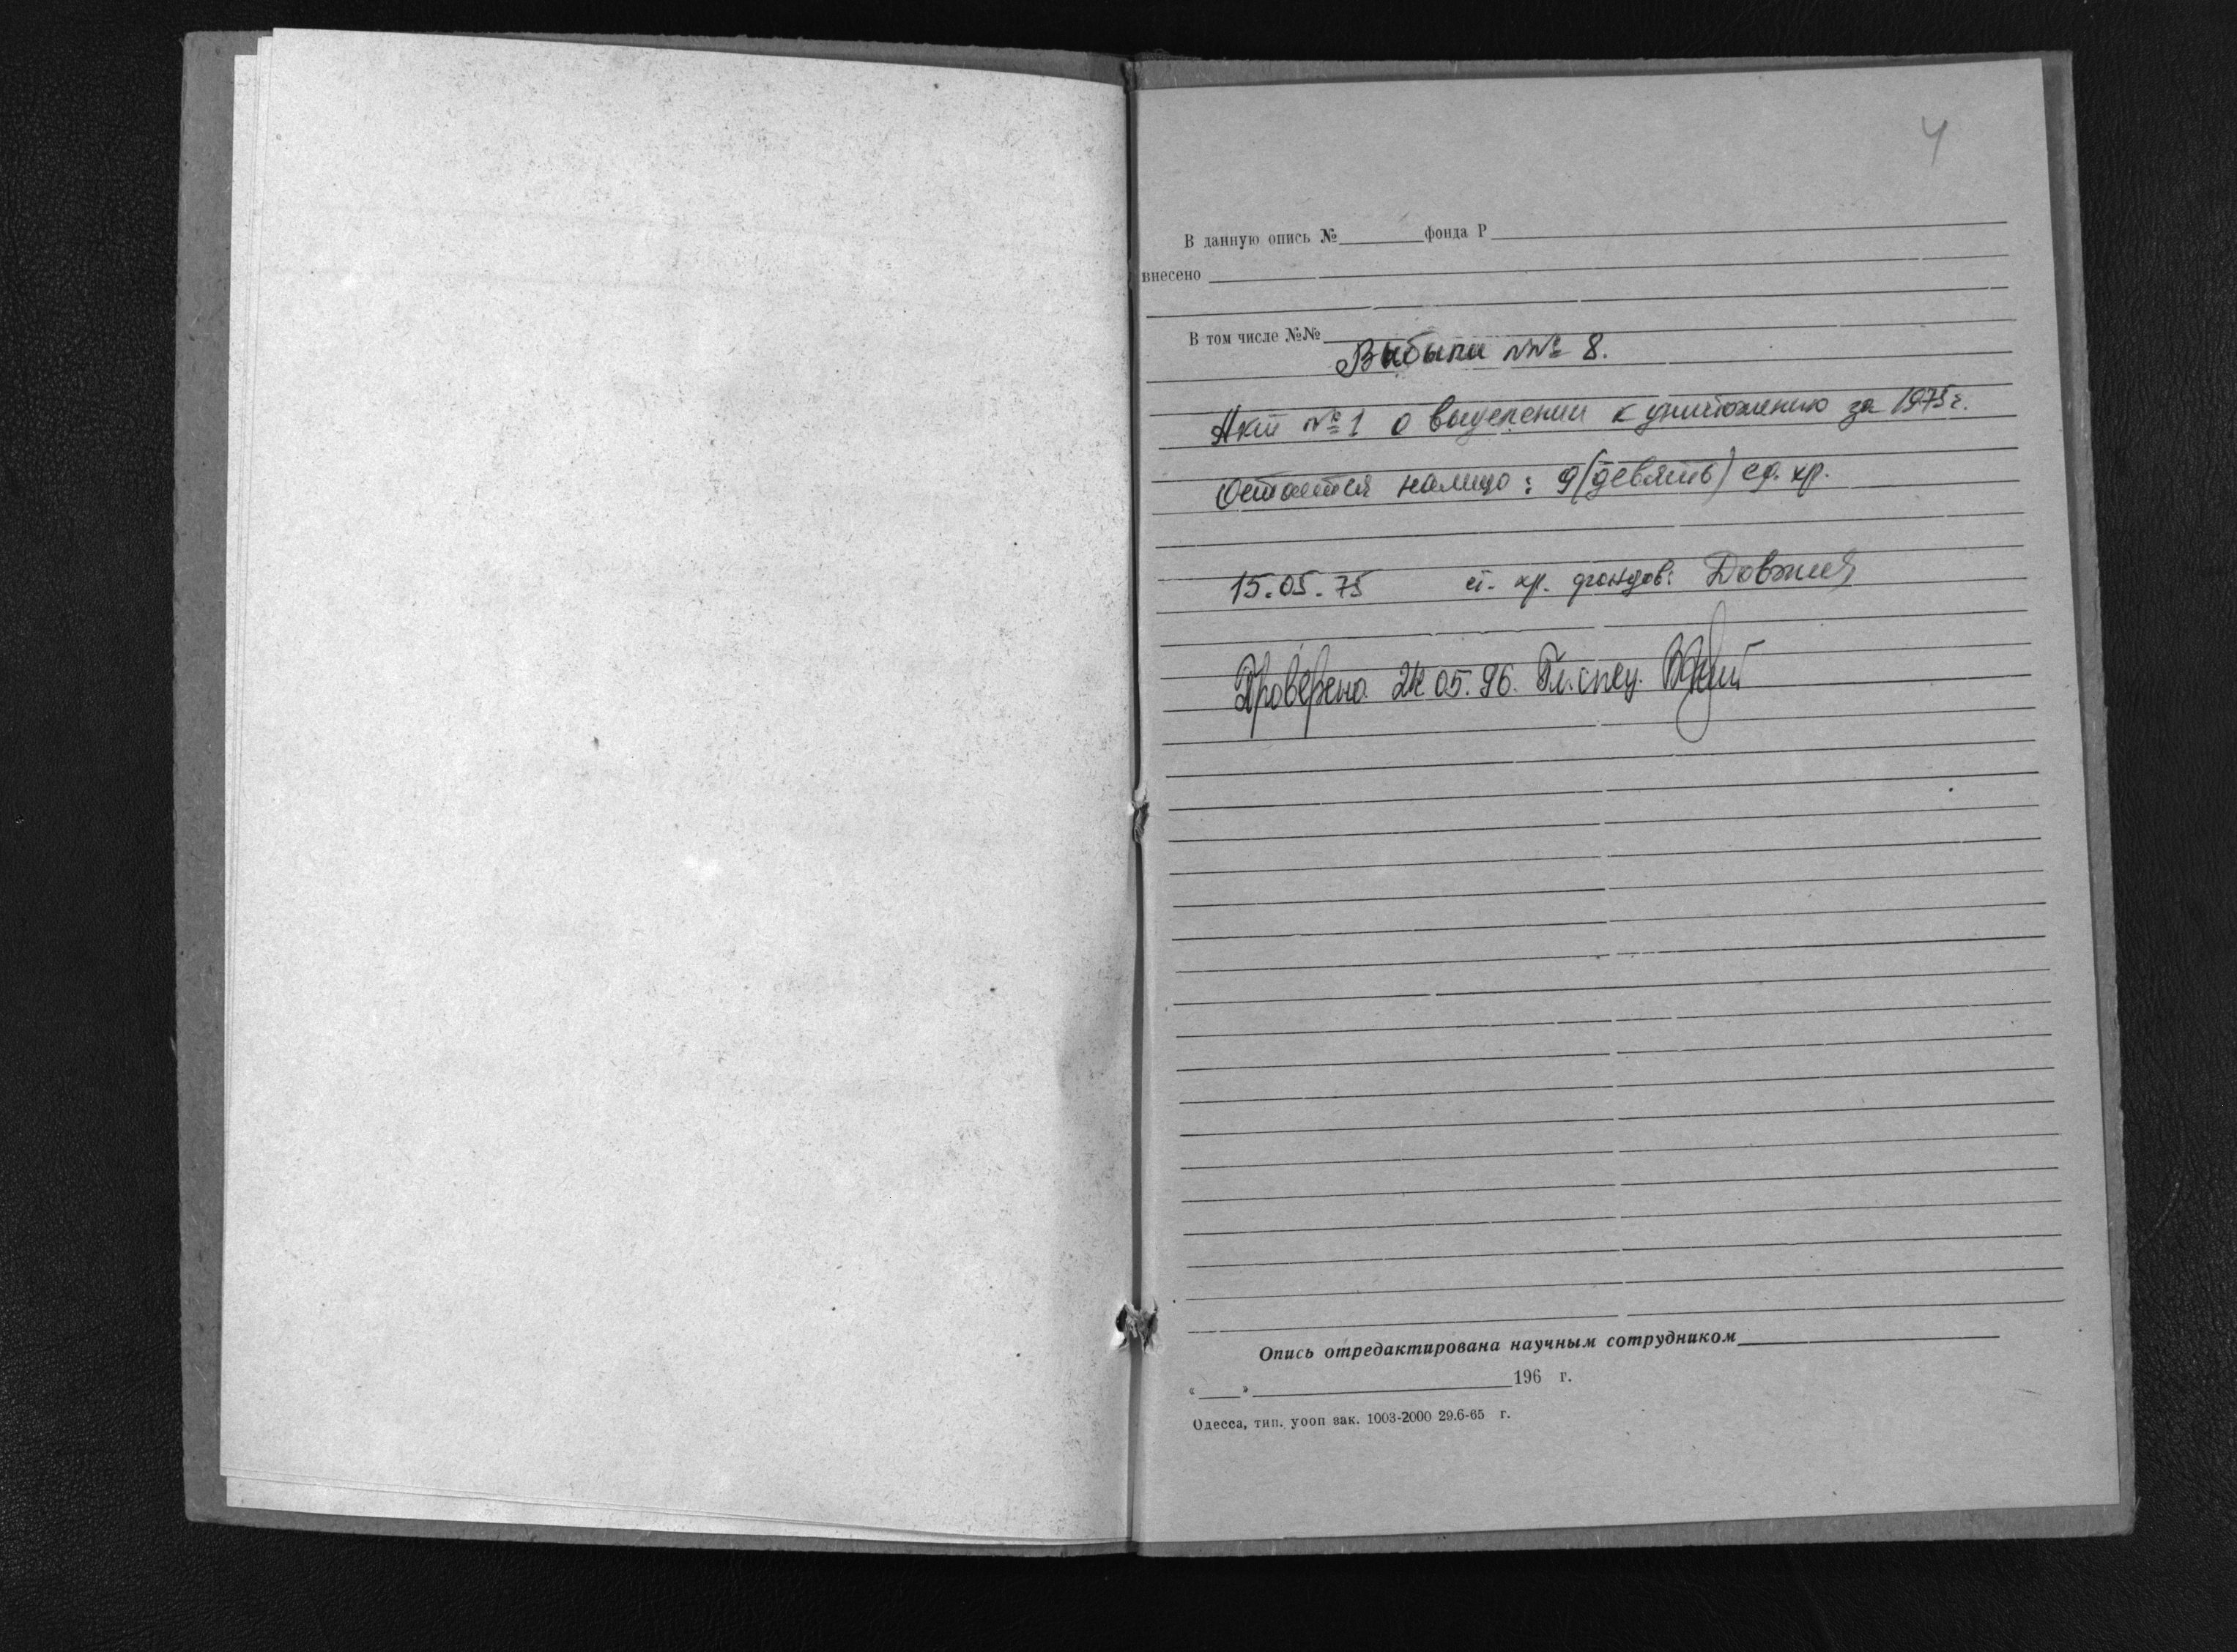 4
В данную опись №________фонда Р________
внесено ________
В том числе №№________
Выбыли №№ 8.
Акт №1 о выделении к уничтожению за 1975г.
Остаётся налицо: 9(девять) ед. хр.
15.05.75 ст. хр. фондов:
Проверено 24.05.96. Гл.спец.
Опись отредактирована научным сотрудником________
«____»________196 г.
Одесса, тип. уооп зак. 1003-2000 29.6-65 г.